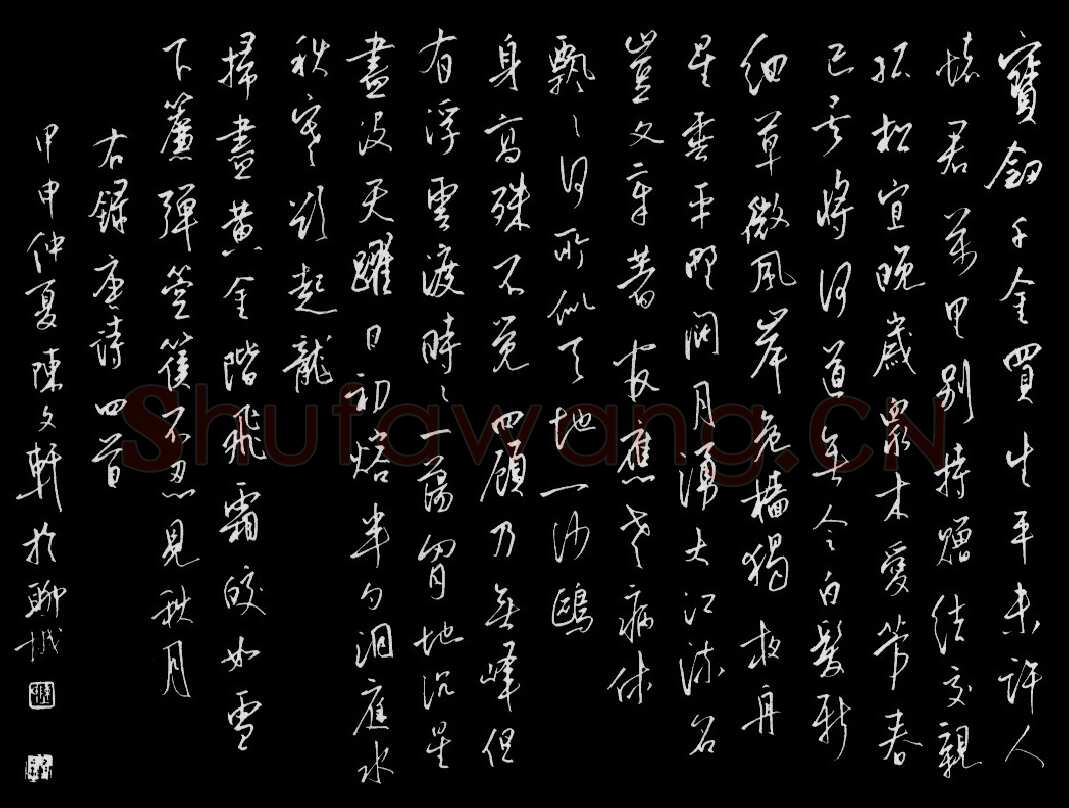 寶劍千金買生平未許人
懷君萬里別持贈結交親
孤松宜晚歲眾木愛芳春
已矣將何道無令白髮新
細草微風岸危檣獨夜舟
星垂平野闊月湧大江流名
豈文章著官應老病休
飄〻何所似天地一沙鷗
身高殊不覺四顧乃無峰但
有浮雲渡時〻一蕩胸地沉星
盡沒天躍日初熔半勺洞庭水
秋寒欲起龍
掃盡黃金階飛霜皎如雪
下簾彈箜篌不忍見秋月
右錄唐詩四首
甲申仲夏陳文軒於聊城
Shufawang.CN